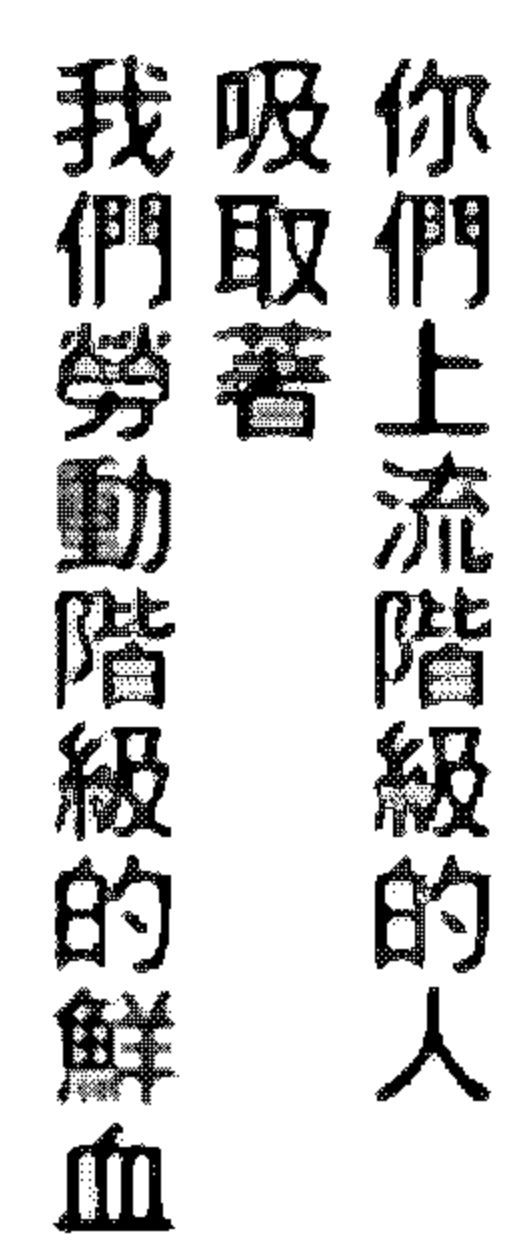 你們上流階級的人
吸取著
我們勞動階級的鮮血